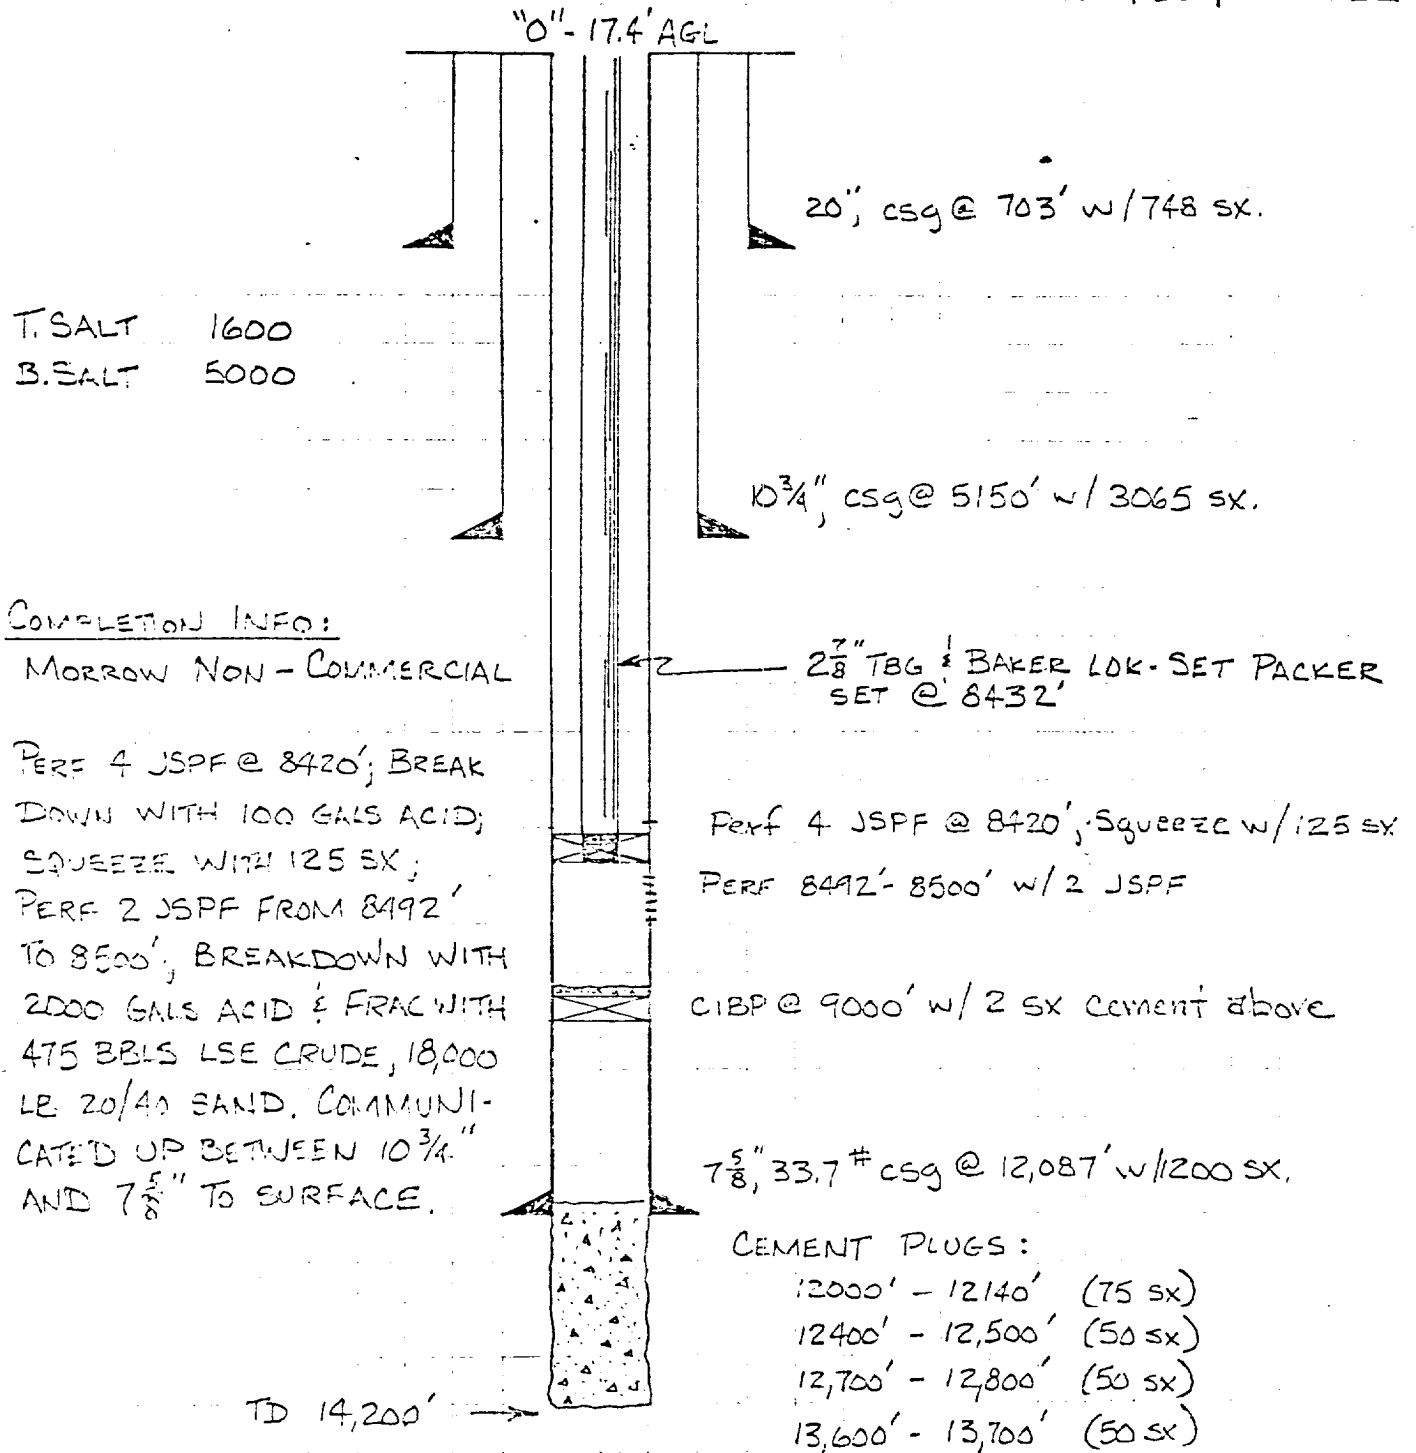 "0" - 17.4' AGL
20", csg @ 703' w/ 748 sx.
T. SALT 1600
B. SALT 5000
10 3/4", csg @ 5150' w/ 3065 sx.
COMPLETION INFO:
MORROW NON-COMMERCIAL
2 7/8" TBG & BAKER LOK-SET PACKER
SET @ 8432'
PERF 4 JSPF @ 8420'; BREAK
DOWN WITH 100 GALS ACID;
SQUEEZE WITH 125 SX;
PERF 2 JSPF FROM 8492'
TO 8500'; BREAKDOWN WITH
2000 GALS ACID & FRAC WITH
475 BBLS LSE CRUDE, 18,000
LB 20/40 SAND. COMMUNI-
CATED UP BETWEEN 10 3/4"
AND 7 5/8" TO SURFACE.
Perf 4 JSPF @ 8420'; Squeeze w/ 125 sx
PERF 8492'- 8500' w/ 2 JSPF
CIBP @ 9000' w/ 2 sx cement above
7 5/8", 33.7# csg @ 12,087' w/ 1200 SX.
CEMENT PLUGS:
12000' - 12140' (75 sx)
12400' - 12,500' (50 sx)
12,700' - 12,800' (50 sx)
13,600' - 13,700' (50 sx)
TD 14,200'